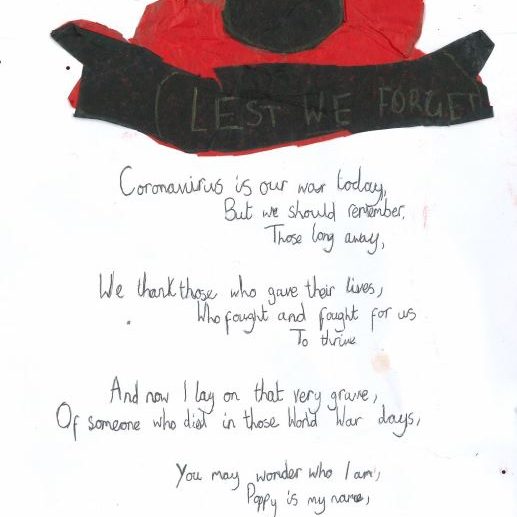 LEST WE FORGET
Coronavirus is our war today,
But we should remember,
Those long away,
We thank those who gave their lives,
Who fought and fought for us
To thrive
And now I lay on that very grave,
Of someone who died in those World War days,
You may wonder who I am,
Poppy is my name,